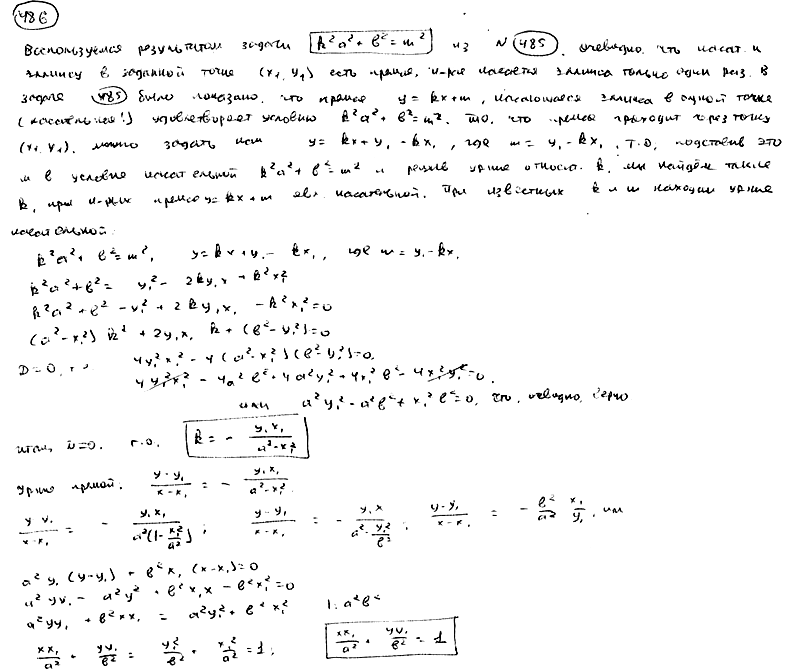 486
Воспользуемся результатом задачи k²a² + b² = m² из N 485. очевидно, что касат. к
эллипсу в заданной точке (x₁, y₁) есть прямая, к-рая касается эллипса только один раз. В
задаче 485 было показано, что прямая y = kx+m, касающаяся эллипса в одной точке
(касательная!) удовлетворяет условию k²a² + b² = m². То, что прямая проходит через точку
(x₁, y₁), можно задать как y = kx + y₁ - kx₁, где m = y₁ - kx₁. Т.о, подставив это
m в условие касательной k²a² + b² = m² и решив ур-ние относит. k, мы найдём такие
k, при к-рых прямая y = kx + m явл. касательной. При известных k и m находим ур-ние
касательной:
k²a² + b² = m², y = kx + y₁ - kx₁, где m = y₁ - kx₁
k²a² + b² = y₁² - 2ky₁x₁ + k²x₁²
k²a² + b² - y₁² + 2ky₁x₁ - k²x₁² = 0
(a² - x₁²) k² + 2y₁x₁ k + (b² - y₁²) = 0
D = 0, 4y₁²x₁² - 4(a² - x₁²)(b² - y₁²) = 0,
4y₁²x₁² - 4a²b² + 4a²y₁² + 4x₁²b² - 4x₁²y₁² = 0.
или a²y₁² - a²b² + x₁²b² = 0, что, очевидно, верно
итак, D = 0. т.о. k = - y₁x₁/(a² - x₁²)
Ур-ние прямой: (y - y₁)/(x - x₁) = - y₁x₁/(a² - x₁²)
(y - y₁)/(x - x₁) = - y₁x₁/(a²(1 - x₁²/a²)); (y - y₁)/(x - x₁) = - y₁x₁/(a² · y₁²/b²); (y - y₁)/(x - x₁) = - b²/a² · x₁/y₁, или
a²y₁(y - y₁) + b²x₁(x - x₁) = 0
a²yy₁ - a²y₁² + b²x₁x - b²x₁² = 0
a²yy₁ + b²xx₁ = a²y₁² + b²x₁² | : a²b²
xx₁/a² + yy₁/b² = y₁²/b² + x₁²/a² = 1; xx₁/a² + yy₁/b² = 1